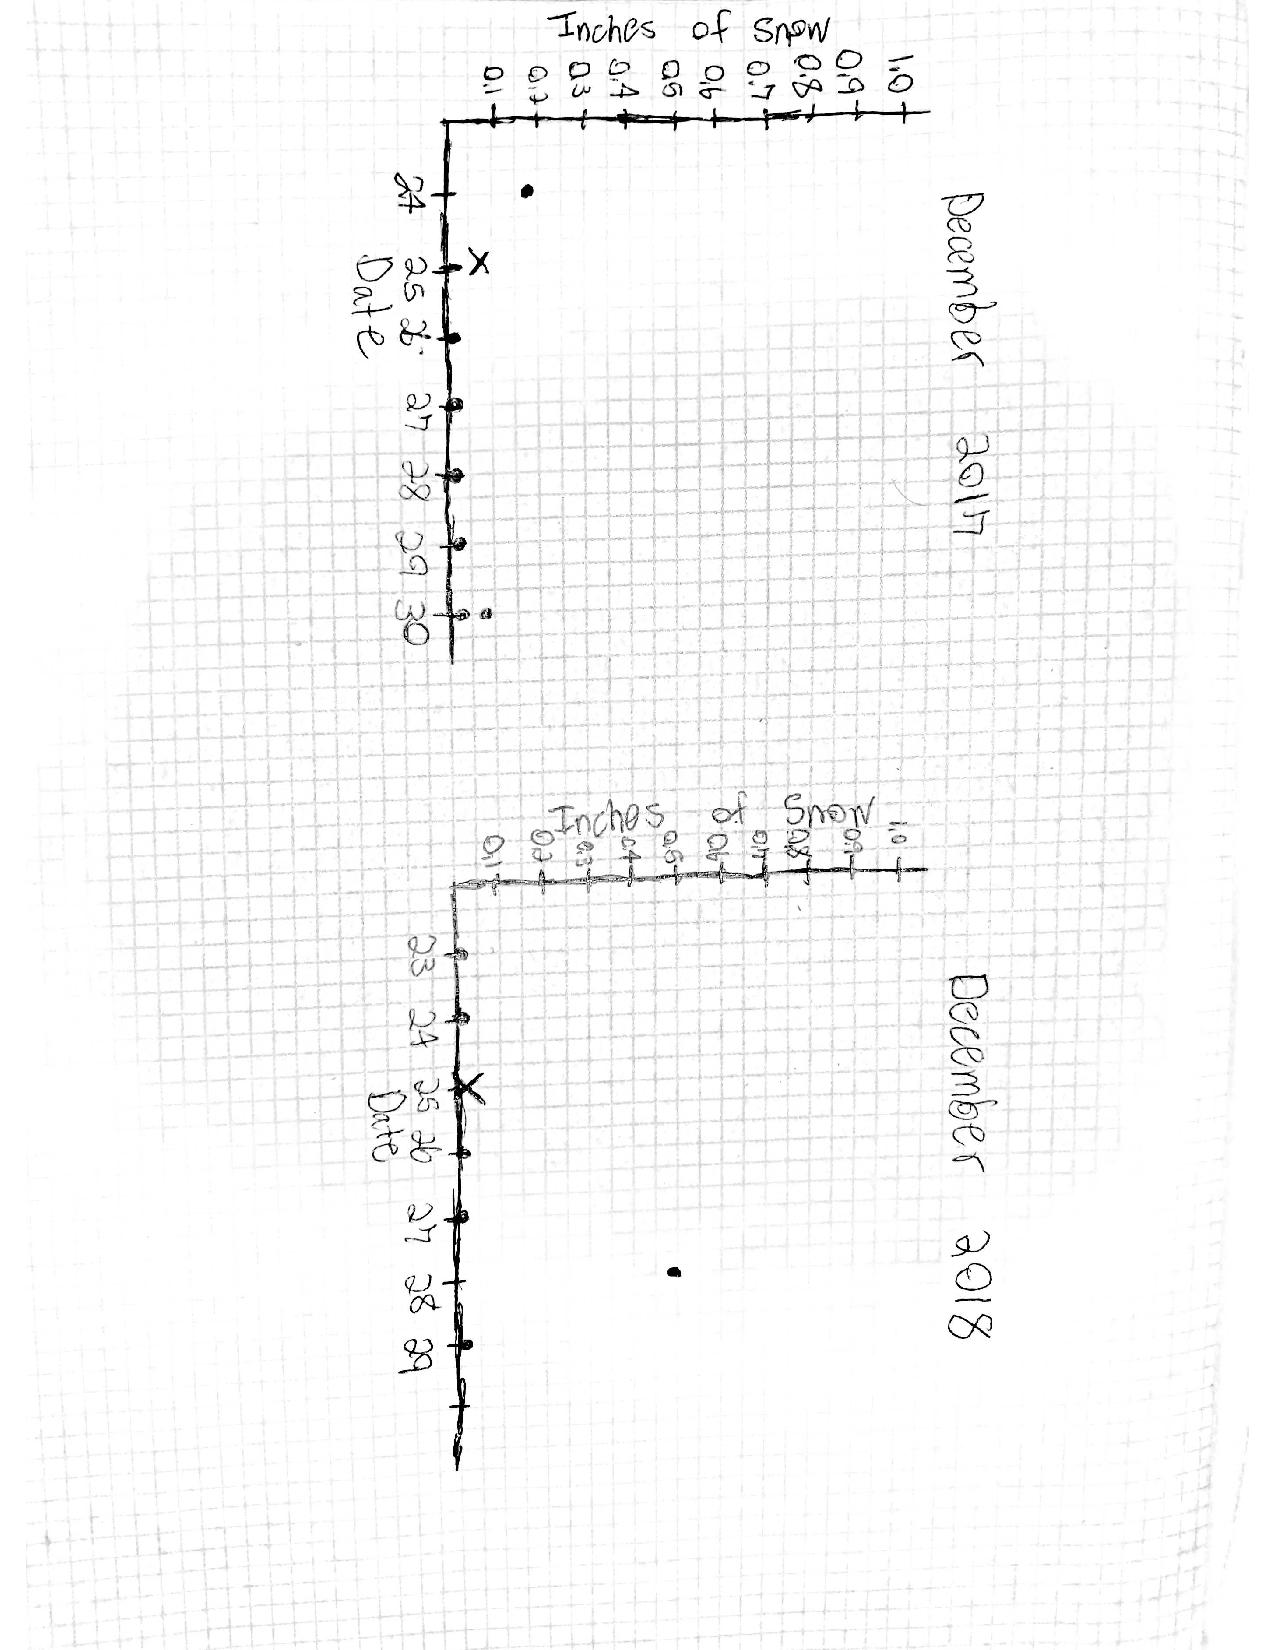 December 2017
Inches of Snow
1.0
0.9
0.8
0.7
0.6
0.5
0.4
0.3
0.2
0.1
24 25 26 27 28 29 30
Date
December 2018
Inches of Snow
1.0
0.9
0.8
0.7
0.6
0.5
0.4
0.3
0.2
0.1
23 24 25 26 27 28 29
Date